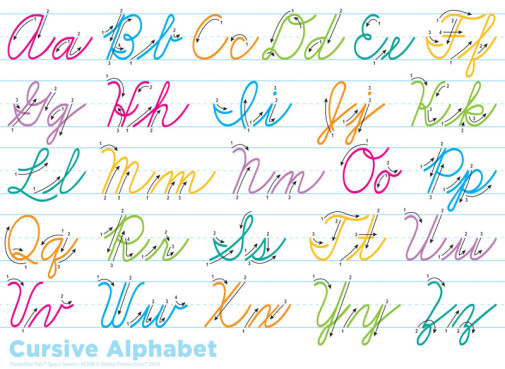 Aa Bb Cc Dd Ee Ff
Gg Hh Ii Jj Kk
Ll Mm Nn Oo Pp
Qq Rr Ss Tt Uu
Vv Ww Xx Yy Zz
Cursive Alphabet